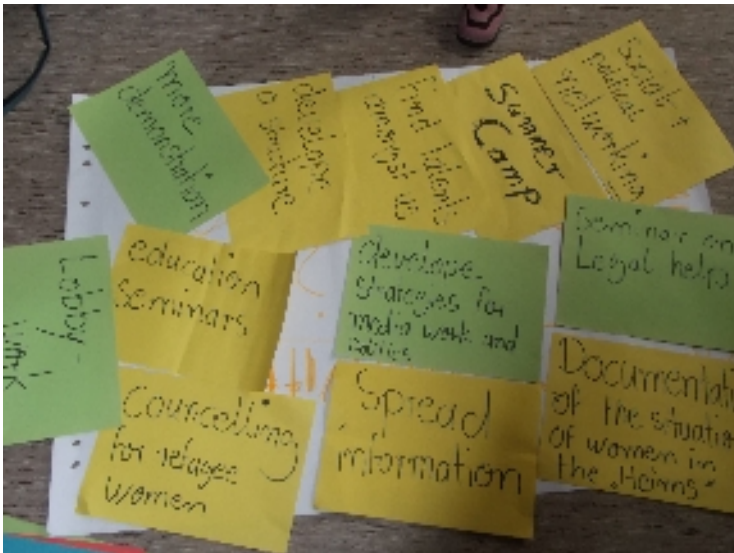 more
demonstration
develope
a structure
find talents
amongst us
Summer
Camp
Social +
political
networking
Lobby-
work
education
seminars
develope
strategies for
media work and
politics
Seminar on
Legal helps
Councelling
for refugee
women
Spread
information
Documentati
of the situatio
of women in
the „Heims“